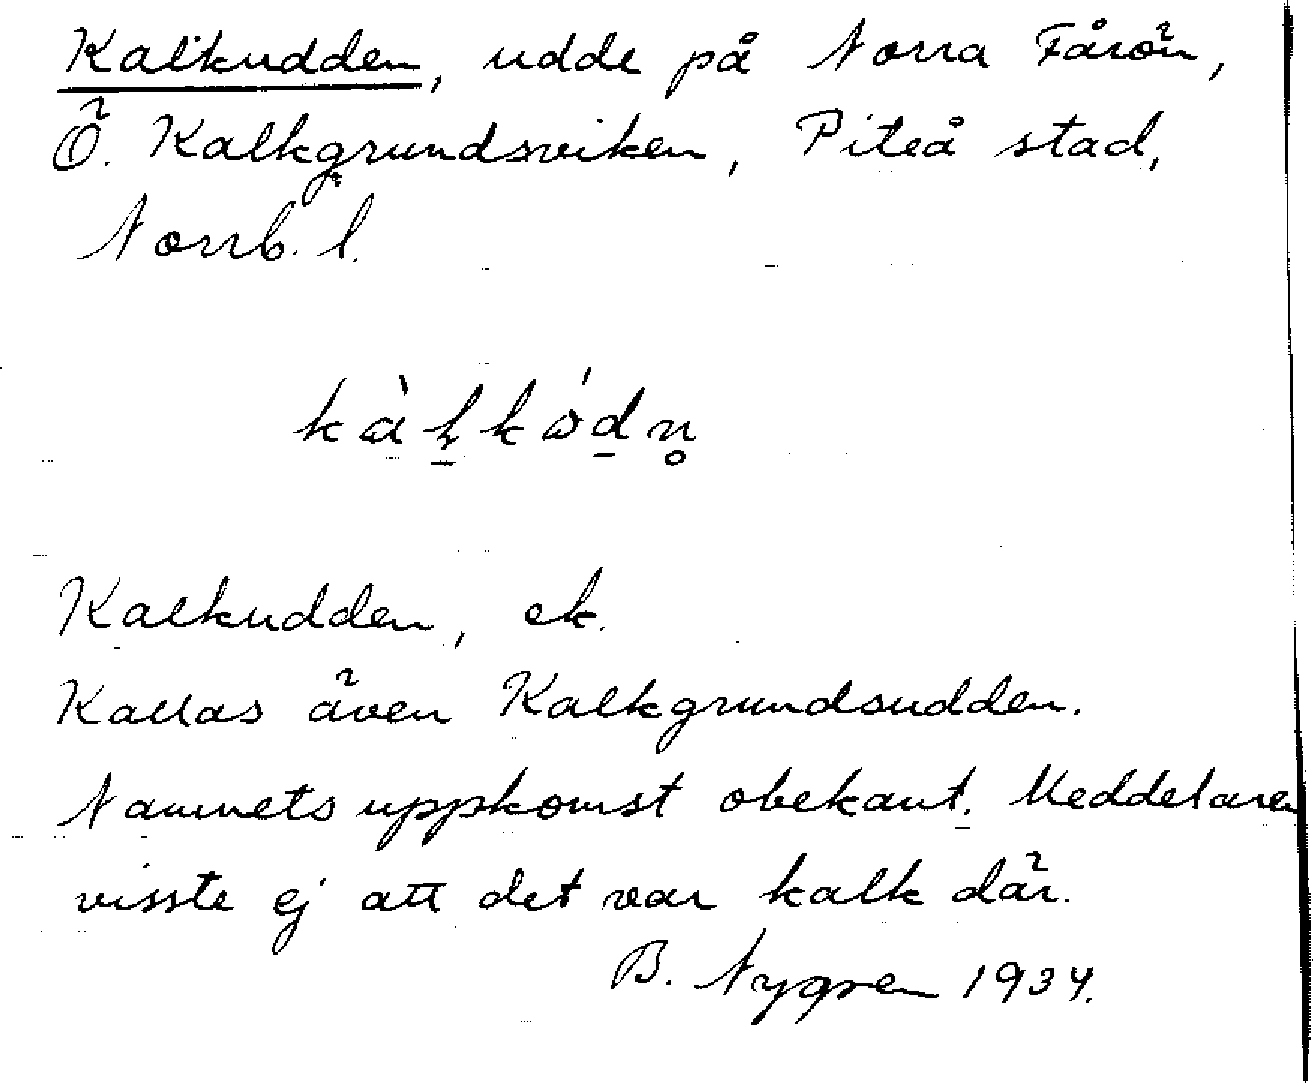 Kalkudden, udde på Norra Fårön,
Ö. Kalkgrundsviken, Piteå stad,
Norrb. l.
Kalkudden, ek.
Kallas även Kalkgrundsudden.
Namnets uppkomst obekant. Meddelaren
visste ej att det var kalk där.
B. Nygren 1934.